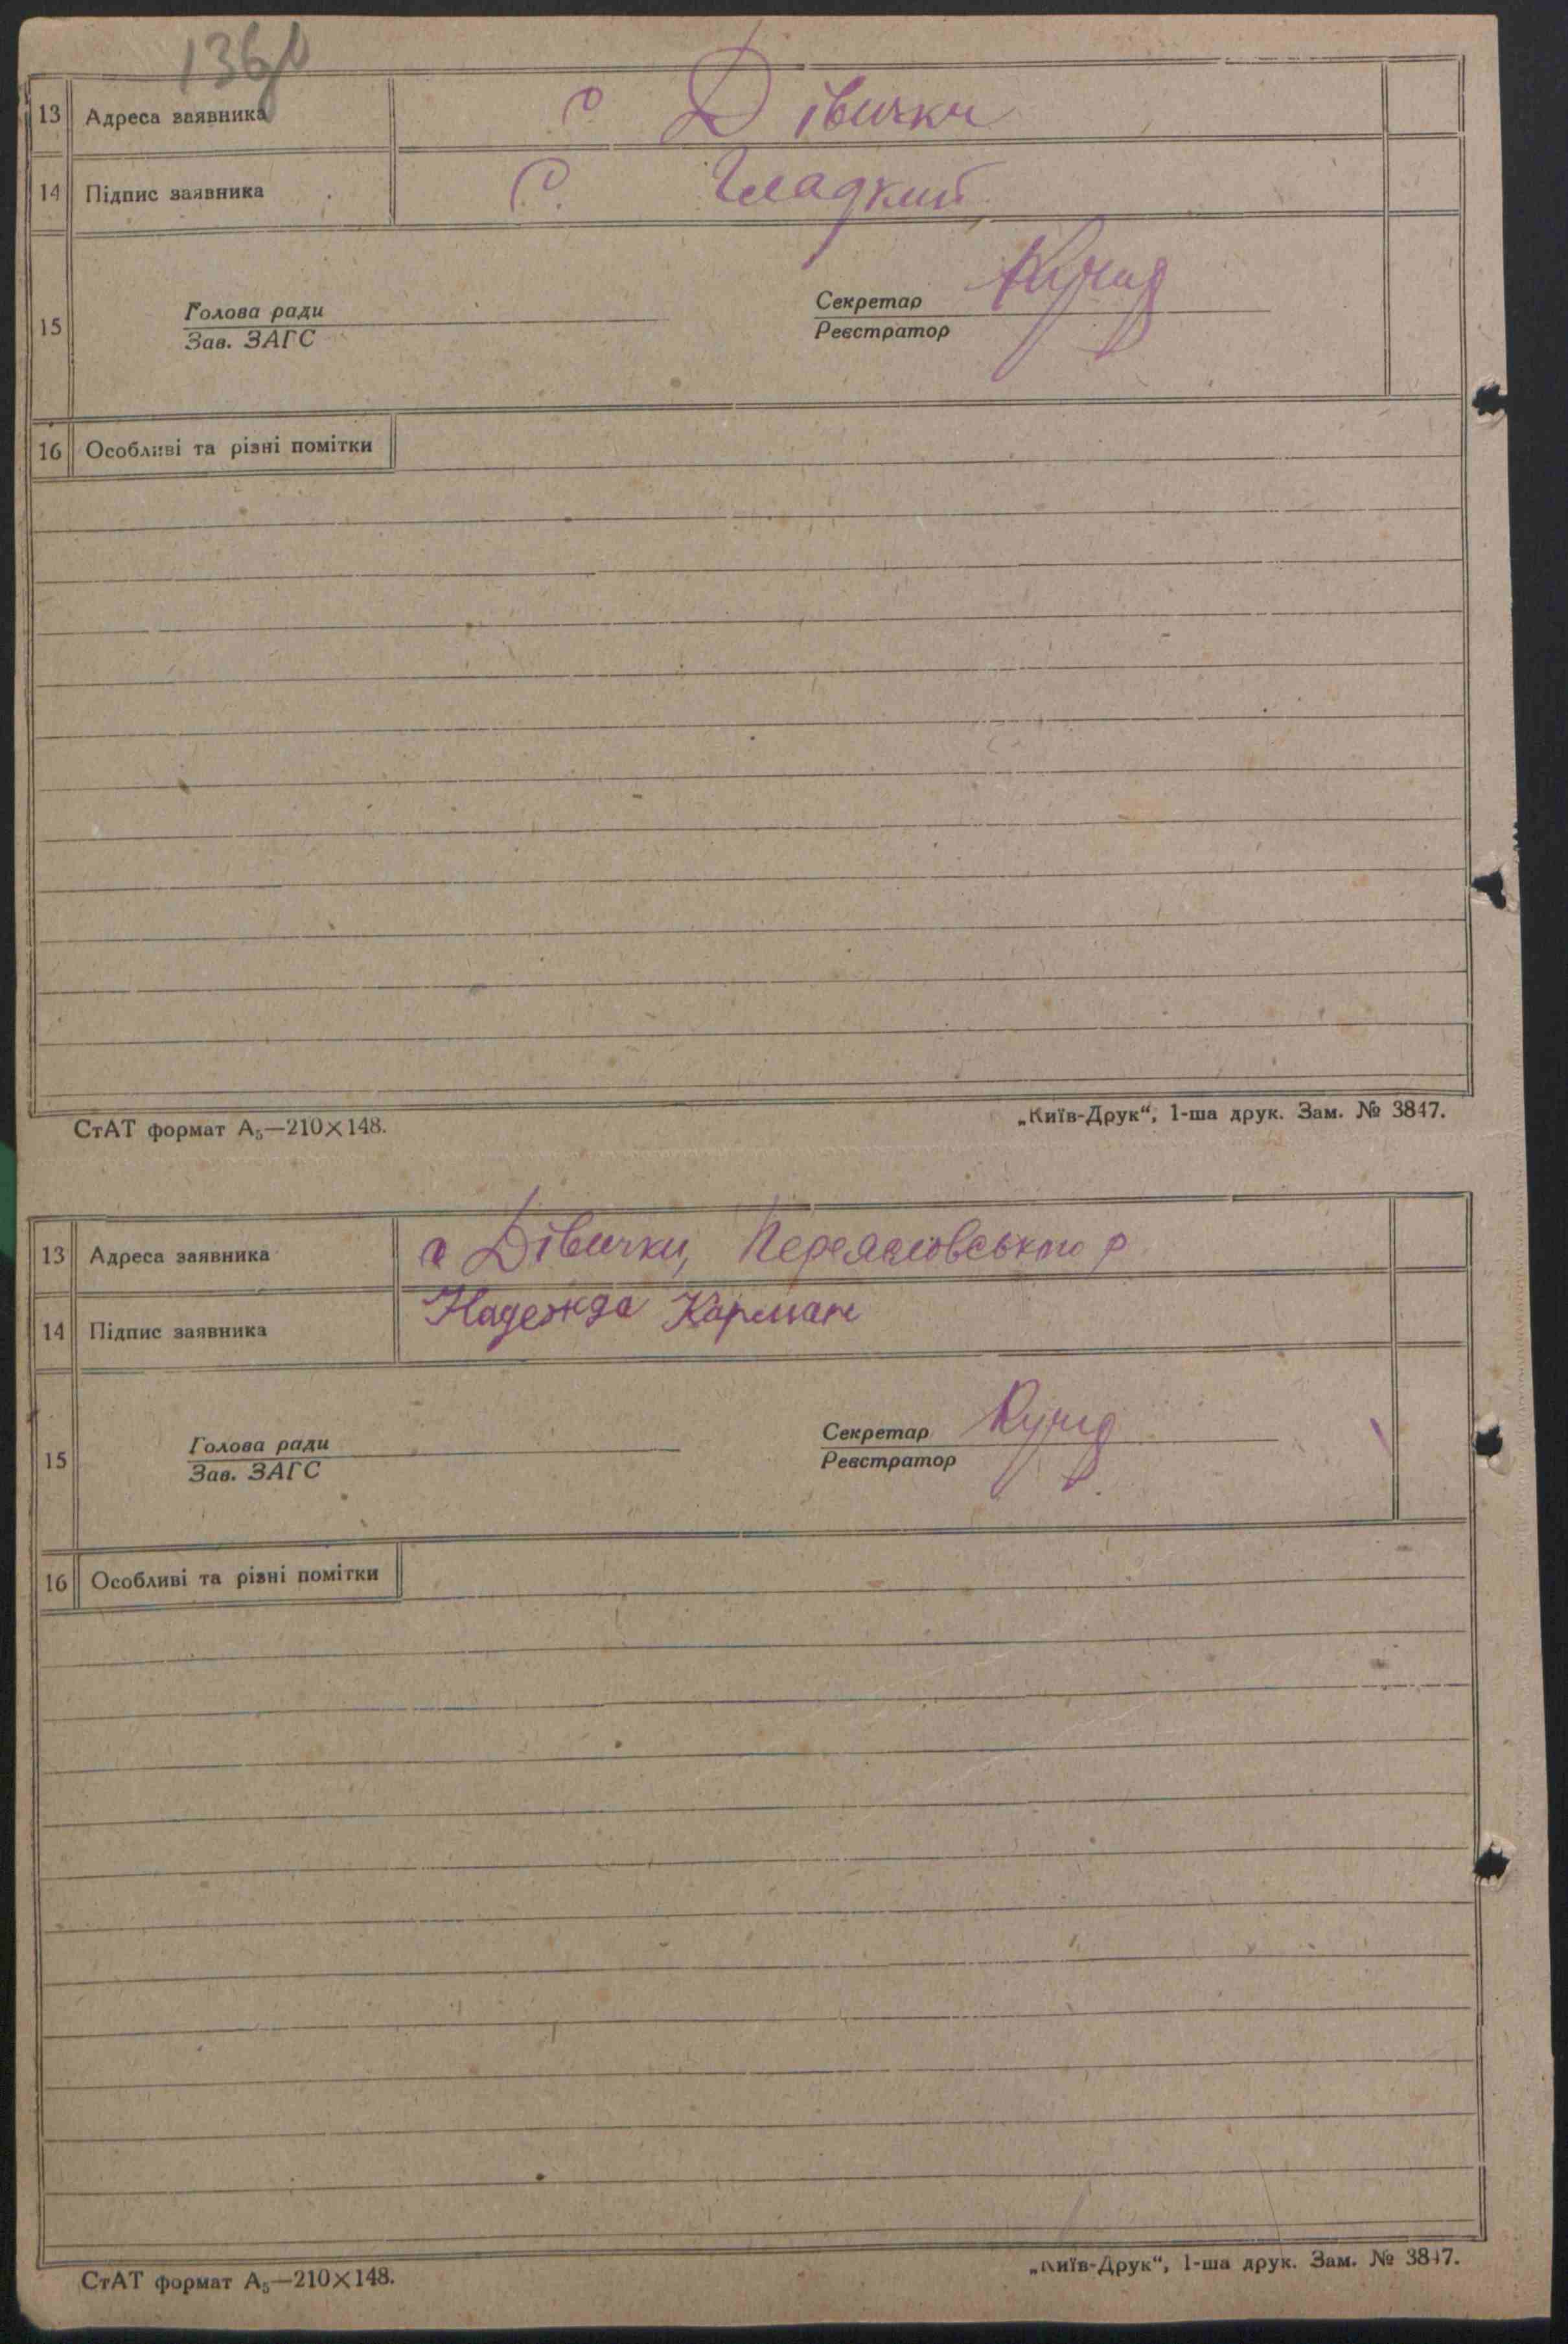 13 Адреса заявника с Дівички
14 Підпис заявника С. Гладкий
15 Голова ради Секретар
Зав. ЗАГС Реєстратор
16 Особливі та різні помітки
СтАТ формат А₅—210×148. „Київ-Друк“, 1-ша друк. Зам. № 3847.
13 Адреса заявника с Дівички, Переясловського р
14 Підпис заявника Надежда Карман
15 Голова ради Секретар
Зав. ЗАГС Реєстратор
16 Особливі та різні помітки
СтАТ формат А₅—210×148. „Київ-Друк“, 1-ша друк. Зам. № 3847.